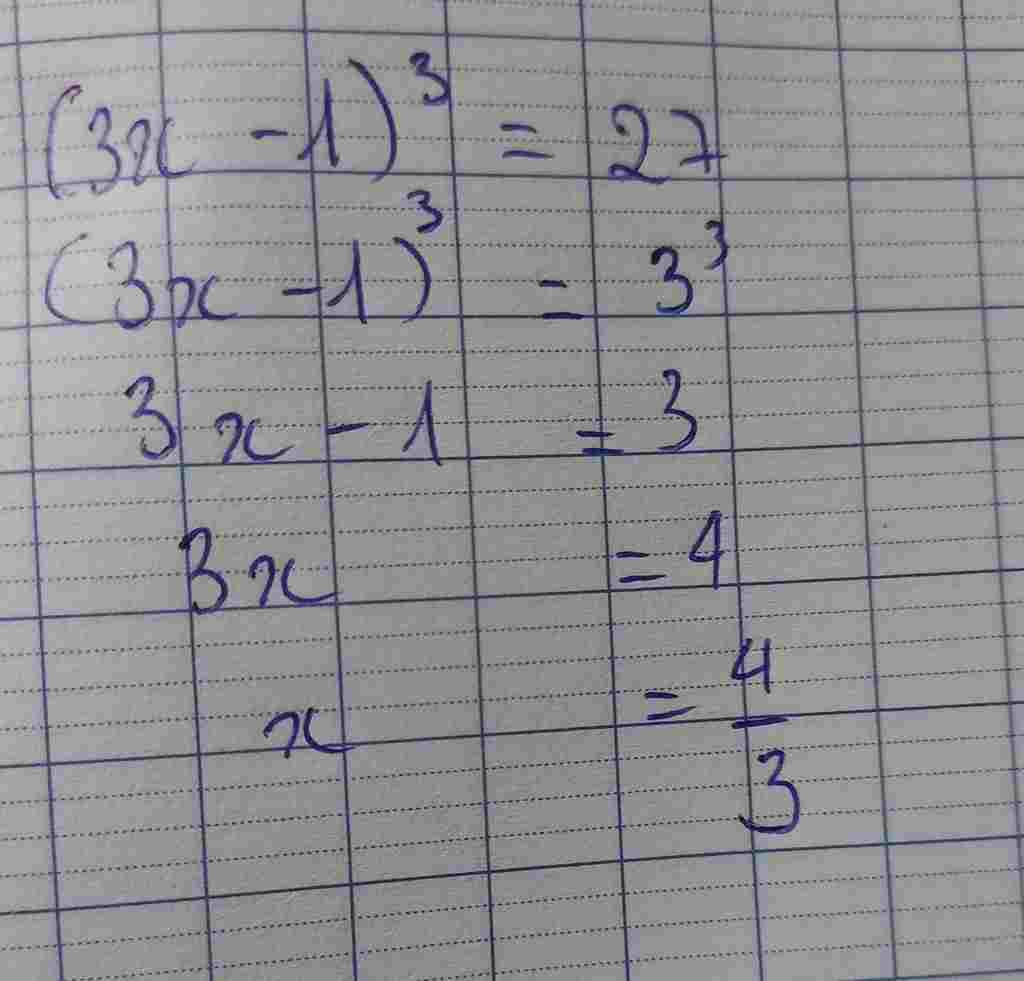 (3x - 1)³ = 27
(3x - 1)³ = 3³
3x - 1 = 3
3x = 4
x = 4/3